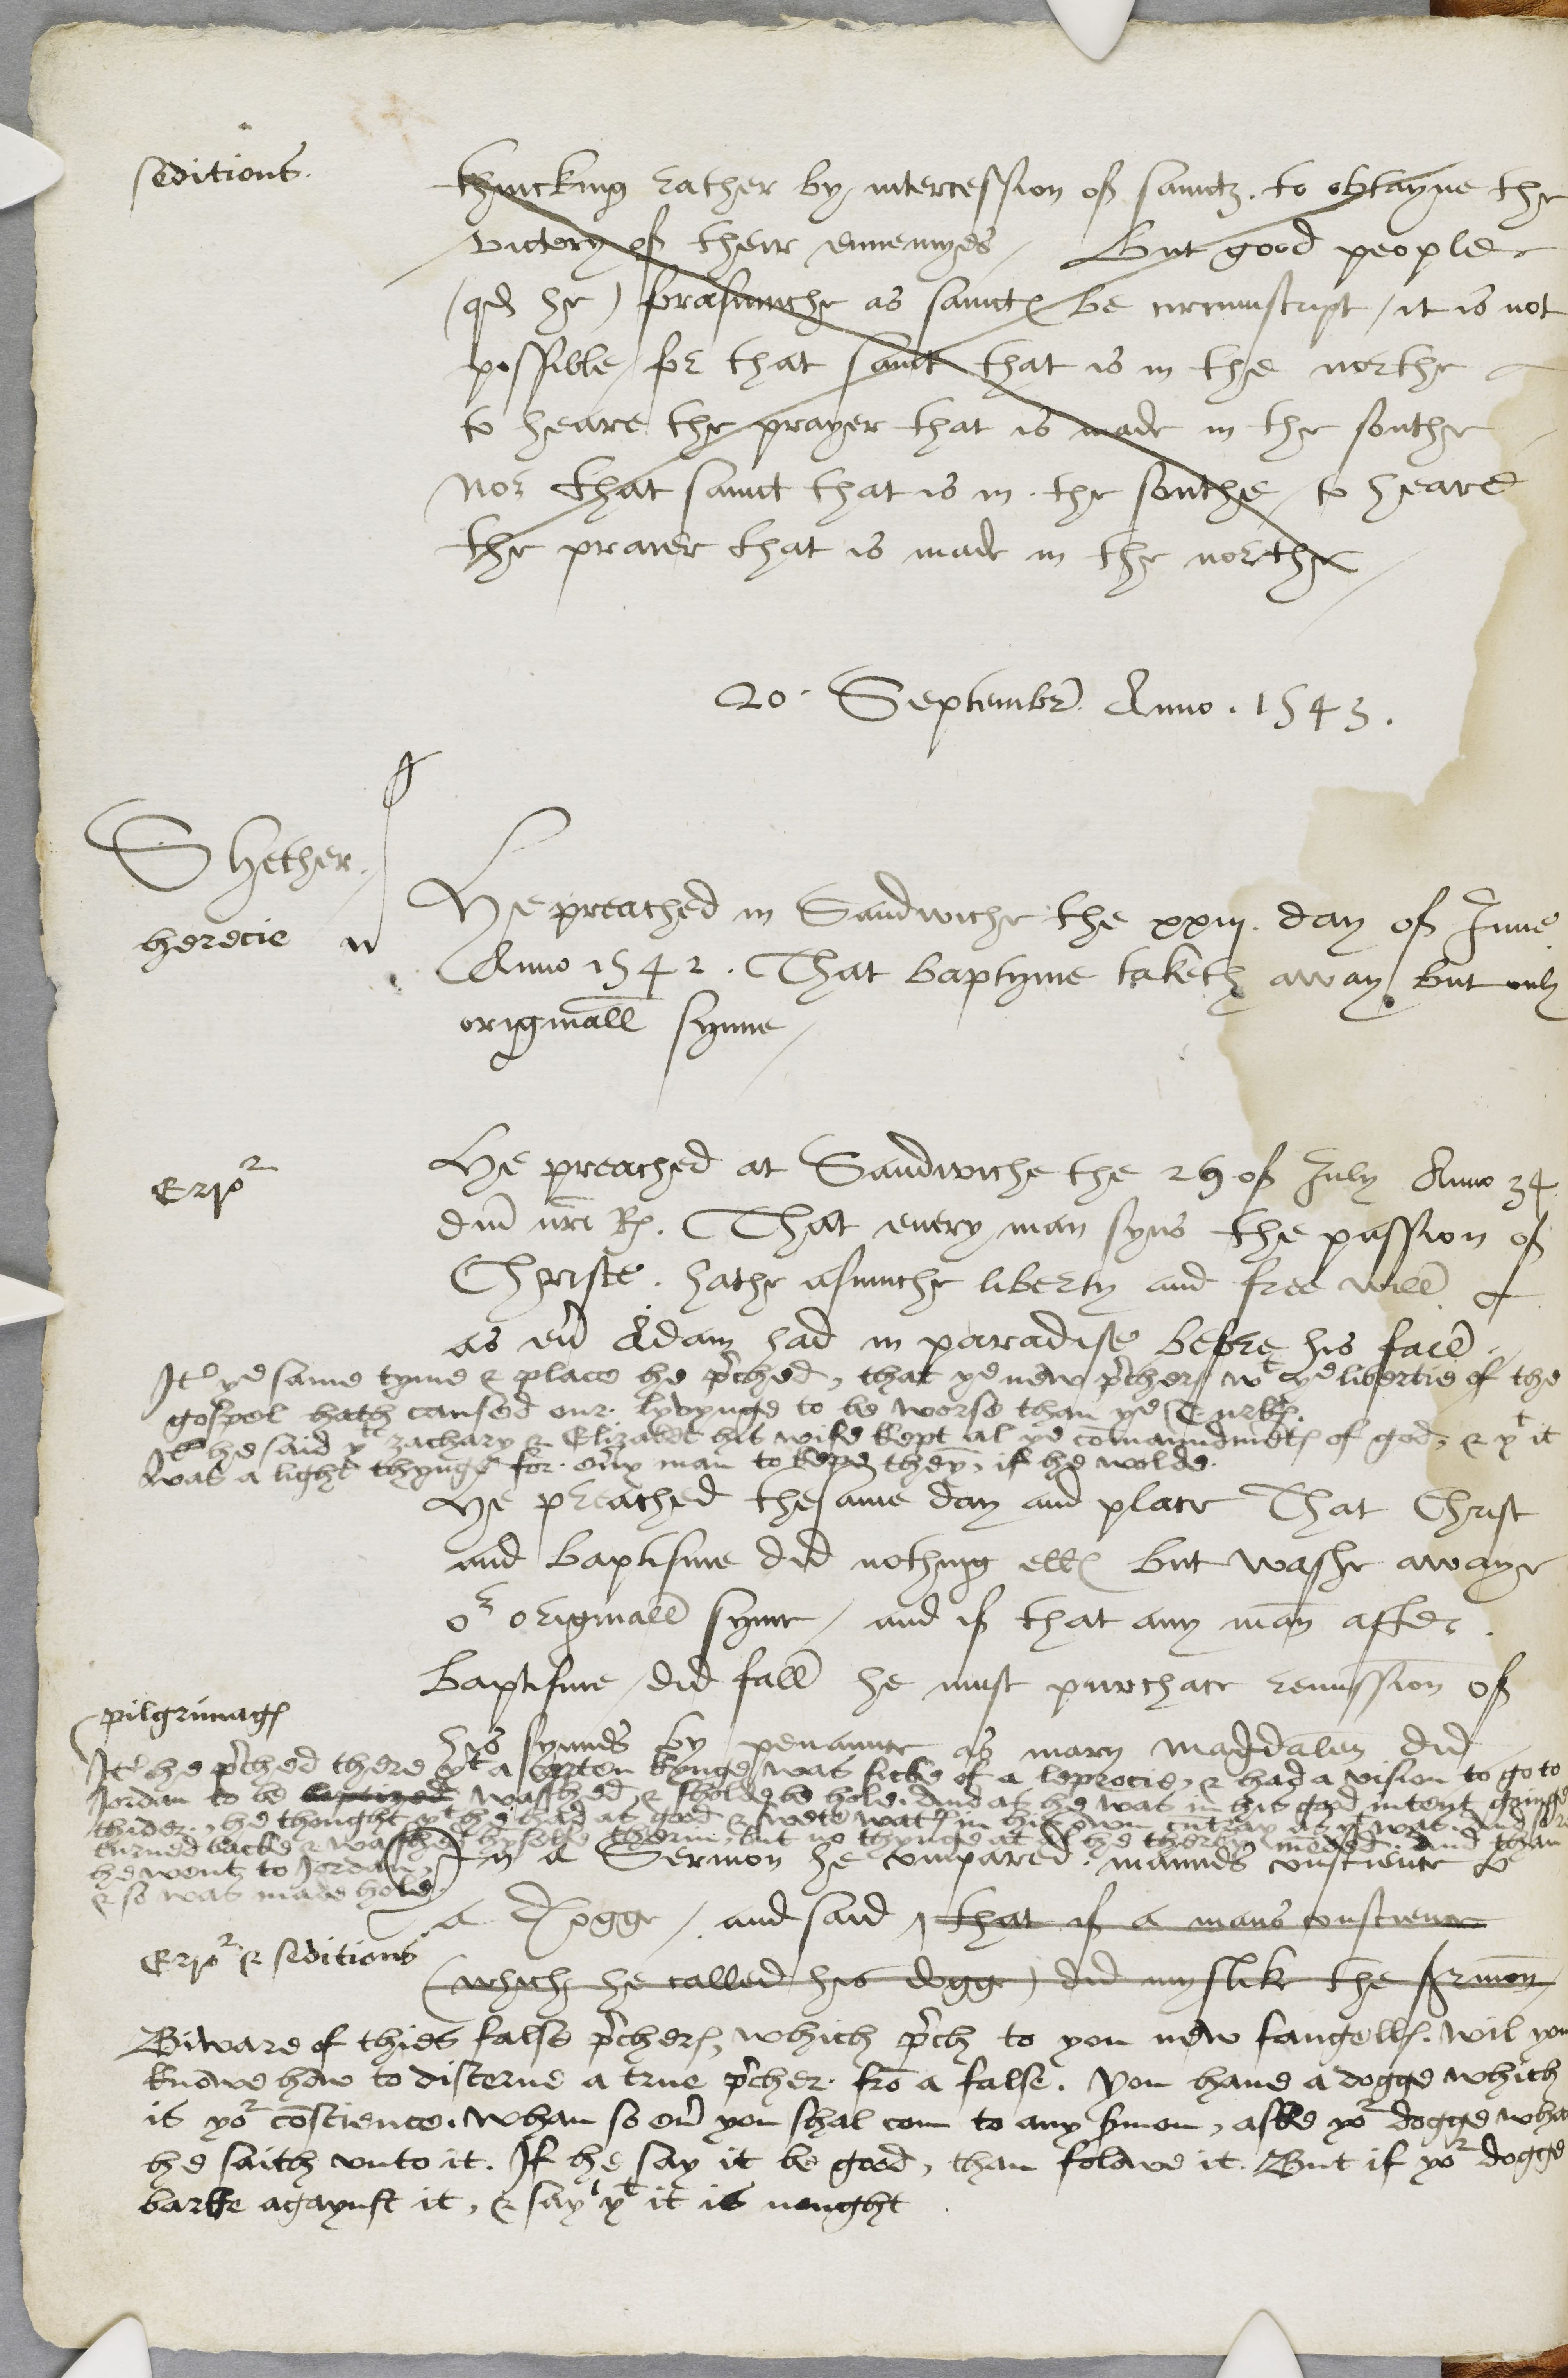 seditious.
thincking rather by intercession of sainctz. to obtayne the
victory of their ennemyes / But good people
(qd he) forasmuche as sainct be circumscript / it is not
possible / for that sainct that is in the northe
to heare the prayer that is made in the southe
Nor that sainct that is in the southe / to heare
the praier that is made in the northe /
20. Septembr Anno. 1543.
Shether.
herecie
He preached in Sandwiche the xxiij. day of June
Anno 1542. That baptyme taketh away but only
originall synne /
Erro^r
He preached at Sandwiche the 29 of July Anno 34
dni nri R. That euery man syns the passion of
Christe. hathe asmuche liberty and free will
as eu Adam had in paradise before his fall.
It ye same tyme & place he p'ched, that ye new p'chers wt ye libertie of the
gospel hath caused our lyvynge to be worse than ye Turkes.
It he said yt zachary & Elizabt his wife kept al ye comaundmets of god, & yt it
was a light thynge for eu'y man to kepe theym, if he wolde.
He preached thesame day and place That Christ
and baptisme did nothing elles but washe awaye
o^r originall synne / and if that any man after
baptisme / did fall he must purchace remission of
his synnes by penaunce as mary magdalen did
pilgrimages
It he p'ched there yt a certen kynge was sicke of a leprocie, & had a vision to go to
Jordan to be baptized wasshed, & sholde be hole. And as he was in his good intent goinge
thider, he thought yt he had as good & wete wat's in his own cuntray as yt was. And so re
turned backe & wasshed hyselffe therin, but no thynge at al he therby meded. And than
he went to Jordan,
& so was made hole.
In a Sermon he compared mannes conscience to
a Dogge / and said, that if a mans conscience
Erro^r & seditious
(which he called his dogge) did myslike the sermon
Biware of thies false p'chers, which p'ch to you new fangells. Wil you
knowe how to discerne a true p'cher fro a false. You haue a dogge which
is yo^r coscience. Whan so eu' you shal com to any smon, aske yo^r dogge what
he saith vnto it. If he say it be good, than folowe it. But if yo^r dogge
barke agaynst it, & say yt it is nought